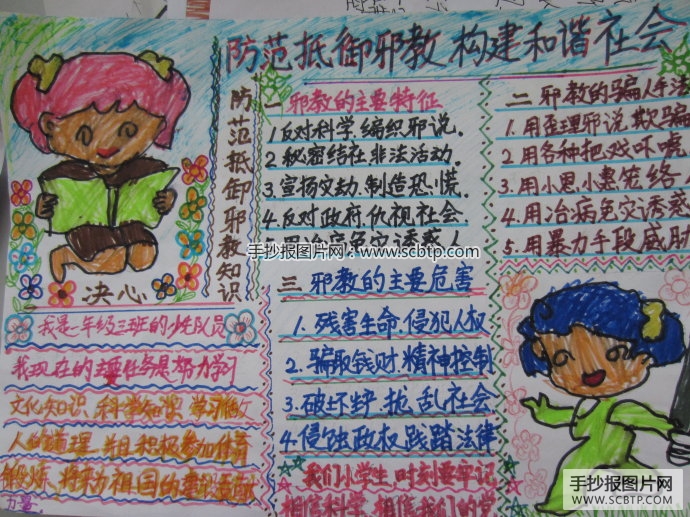 防范抵御邪教 构建和谐社会
防范抵御邪教知识
一 邪教的主要特征
1.反对科学.编织邪说.
2.秘密结社.非法活动.
3.宣扬末劫.制造恐慌.
4.反对政府.仇视社会.
手抄报图片网
www.scbtp.com
二 邪教的骗人手法
1.用歪理邪说欺骗
2.用各种把戏吓唬
3.用小恩小惠笼络
4.用治病免灾诱惑
5.用暴力手段威胁
三 邪教的主要危害
1.残害生命.侵犯人权
2.骗取钱财.精神控制
3.破坏 扰乱社会
4.侵蚀政权践踏法律
我们小学生,时刻要牢记
相信科学 相信我们的党
决心
我是一年级三班的少年队员
我现在的主要任务是努力学习
文化知识、科学知识 学习做
人的道理,并且积极参加体育
锻炼,将来为祖国
力量.
手抄报图片网
WWW.SCBTP.COM